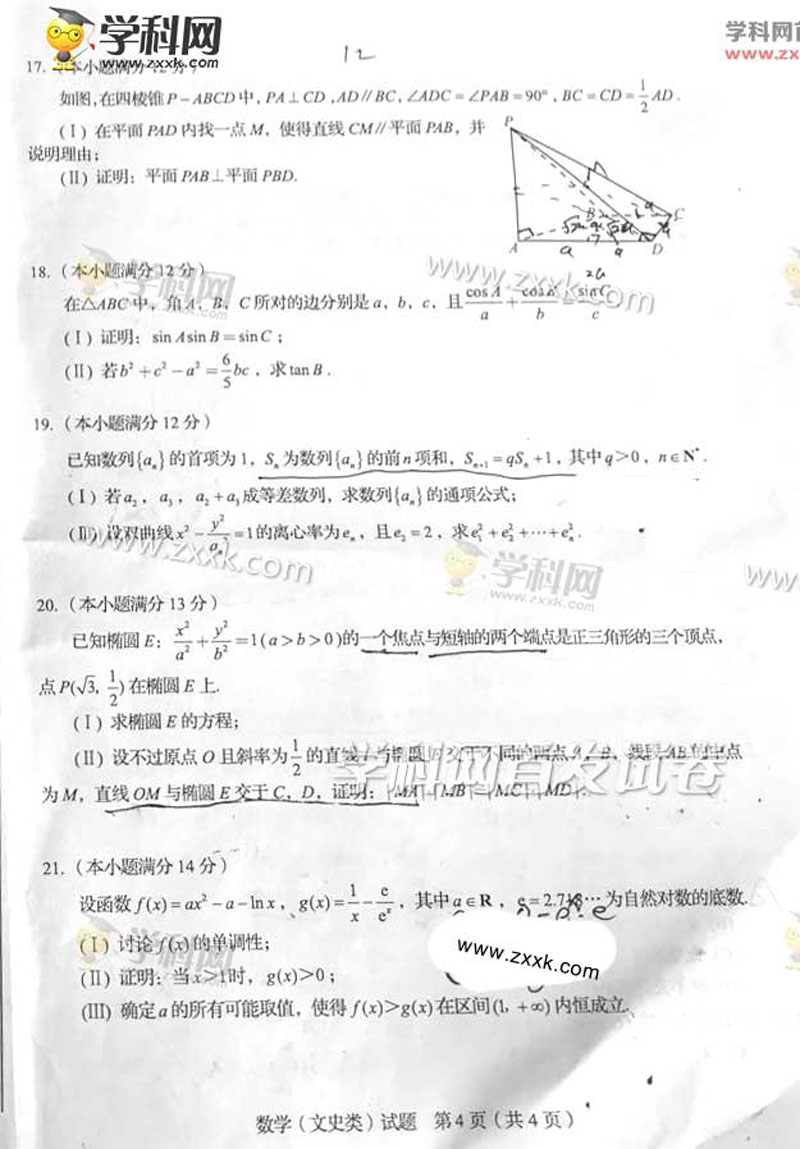 学科网
www.zxxk.com
学科网首
www.zx
12
17.(本小题满分12分)
如图,在四棱锥P-ABCD中,PA⊥CD,AD∥BC,∠ADC=∠PAB=90°,BC=CD=1/2 AD.
(Ⅰ)在平面PAD内找一点M,使得直线CM∥平面PAB,并
说明理由;
(Ⅱ)证明:平面PAB⊥平面PBD.
P
B
C
A
D
a
a
2a
18.(本小题满分12分)
www.zxxk.com
在△ABC中,角A,B,C所对的边分别是a,b,c,且cosA/a+cosB/b=sinC/c
(Ⅰ)证明:sin Asin B=sin C;
(Ⅱ)若b²+c²-a²=6/5 bc,求tan B.
19.(本小题满分12分)
已知数列{aₙ}的首项为1,Sₙ为数列{aₙ}的前n项和,Sₙ₊₁=qSₙ+1,其中q>0,n∈N*.
(Ⅰ)若a₂,a₃,a₂+a₃成等差数列,求数列{aₙ}的通项公式;
(Ⅱ)设双曲线x²-y²/aₙ²=1的离心率为eₙ,且e₂=2,求e₁²+e₂²+⋯+eₙ².
www.zxxk.com
学科网
zxxk.com
www
20.(本小题满分13分)
已知椭圆E:x²/a²+y²/b²=1(a>b>0)的一个焦点与短轴的两个端点是正三角形的三个顶点,
点P(√3,1/2)在椭圆E上.
(Ⅰ)求椭圆E的方程;
(Ⅱ)设不过原点O且斜率为1/2的直线l与椭圆E交于不同的两点A,B,线段AB的中点
学科网首发试卷
为M,直线OM与椭圆E交于C,D,证明:|MA|·|MB|=|MC|·|MD|.
21.(本小题满分14分)
设函数f(x)=ax²-a-ln x,g(x)=1/x-e/eˣ,其中a∈R,e=2.718…为自然对数的底数.
(Ⅰ)讨论f(x)的单调性;
(Ⅱ)证明:当x>1时,g(x)>0;
www.zxxk.com
(Ⅲ)确定a的所有可能取值,使得f(x)>g(x)在区间(1,+∞)内恒成立.
数学(文史类)试题 第4页(共4页)